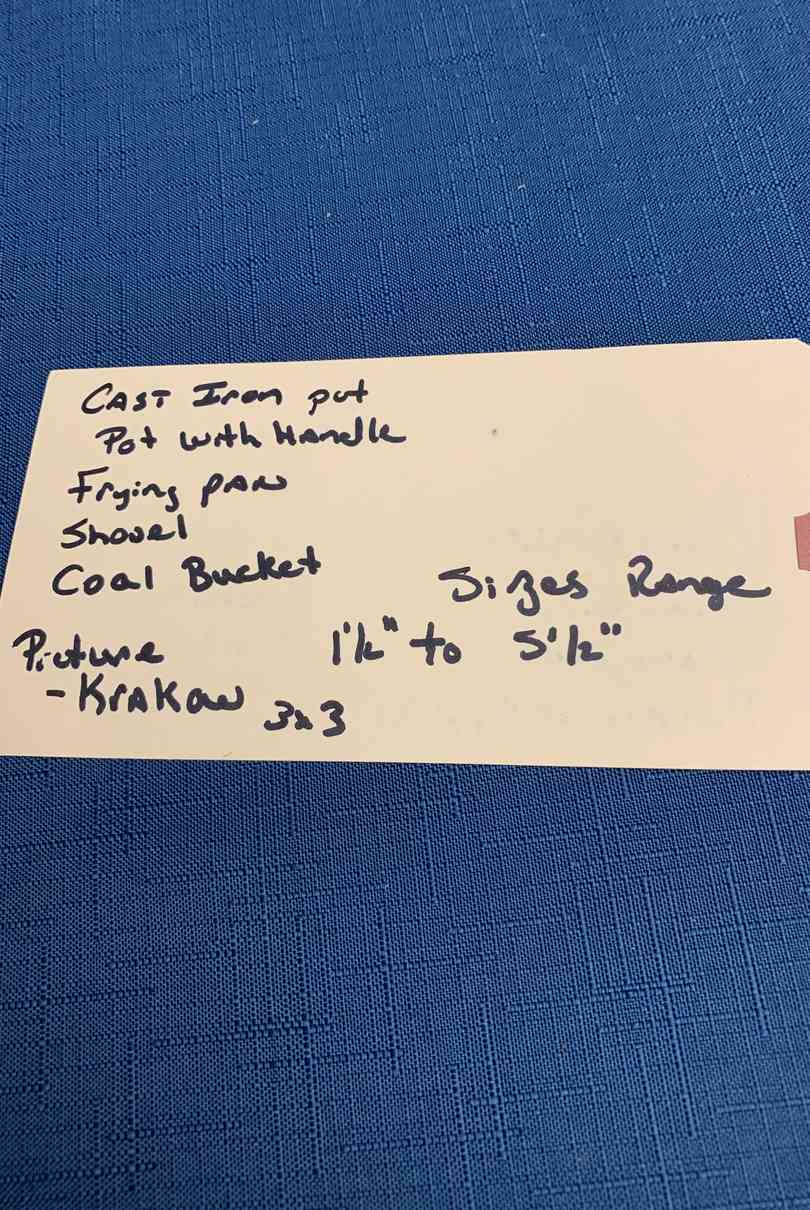 CAST Iron pot
Pot with Handle
Frying PAN
Shovel
Coal Bucket
Sizes Range
1 1/2" to 5 1/2"
Picture
- KrAKow 3x3